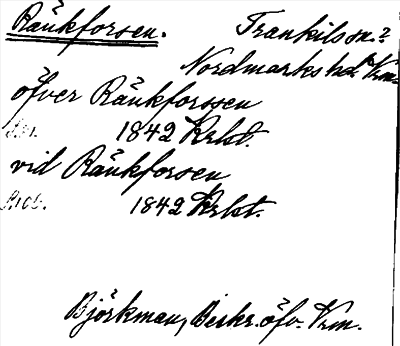 Ränkforsen.
Trankils sn.?
Nordmarks hd. Vrm.
öfver Ränkforssen
1842 Krlst.
vid Ränkforsen
1842 Krlst.
Björkman, Beskr. öfv. Vrm.